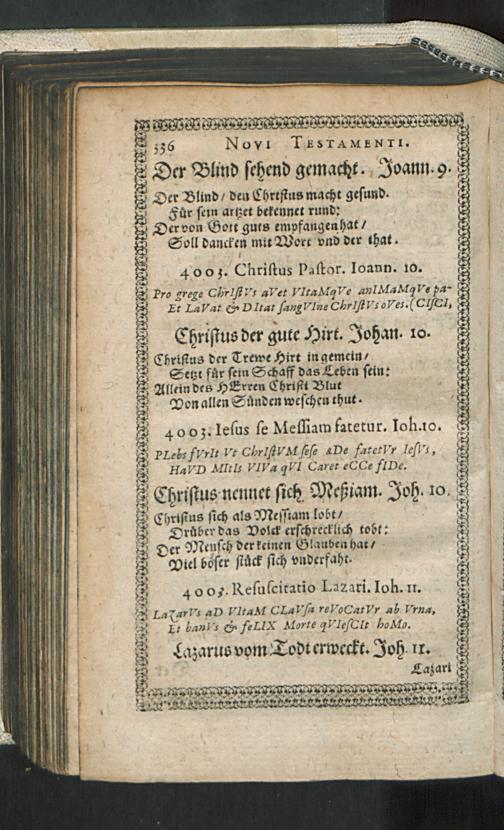 336 NOVI TESTAMENTI.
Der Blind sehend gemacht. Joann. 9.
Der Blind / den Christus macht gesund.
Für sein artzet bekennet rund:
Der von Gott guts empfangen hat /
Soll dancken mit Wort vnd der that.
4003. Christus Pastor. Ioann. 10.
Pro grege ChrIstVs aVet VItaMqVe anIMaMqVe pa-
Et LaVat & DItat sangVIne ChrIstVs oVes. (CIsCI,
Christus der gute Hirt. Johan. 10.
Christus der Trewe Hirt in gemein /
Setzt für sein Schaff das Leben sein:
Allein des HErren Christi Blut
Von allen Sünden weschen thut.
4003. Iesus se Messiam fatetur. Ioh. 10.
PLebs fVrIt Vt ChrIstVM sese aDe fatetVr IesVs,
HaVD MItIs VIVa qVI Caret eCCe fIDe.
Christus nennet sich Meßiam. Joh. 10.
Christus sich als Messiam lobt /
Drüber das Volck erschrecklich tobt:
Der Mensch der keinen Glauben hat /
Viel böser stück sich vnderfaht.
4003. Resuscitatio Lazari. Ioh. 11.
LaZarVs aD VItaM CLaVsa reVoCatVr ab Vrna,
Et hanVs & feLIX Morte qVIesCIt hoMo.
Lazarus vom Todt erweckt. Joh. 11.
Lazari